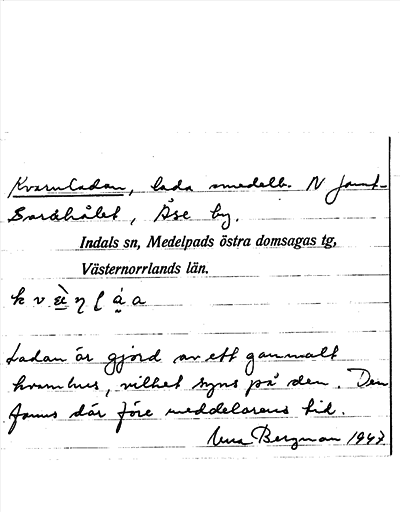 Kvarnladan, lada omedelb. N Jamt-
Bordhålet, Åse by.
Indals sn, Medelpads östra domsagas tg,
Västernorrlands län.
Ladan är gjord av ett gammalt
kvarnhus, vilket syns på den. Den
fanns där före meddelarens tid.
Bergman 1947